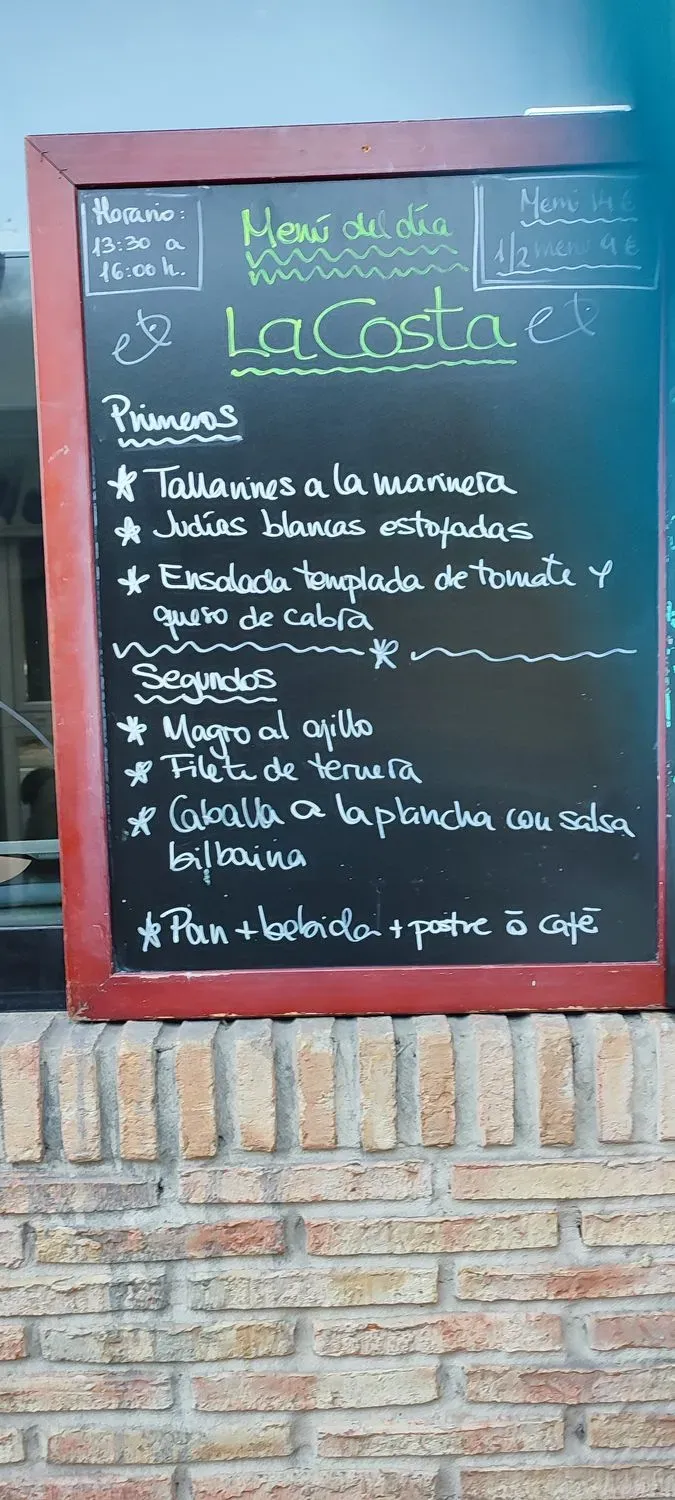 Horario:
13:30 a
16:00 h.
Menú del día
Menú 14 €
1/2 menú 9 €
La Costa
Primeros
* Tallarines a la marinera
* Judías blancas estofadas
* Ensalada templada de tomate y
queso de cabra
Segundos
* Magro al ajillo
* Filete de ternera
* Caballa a la plancha con salsa
bilbaina
* Pan + bebida + postre ō café